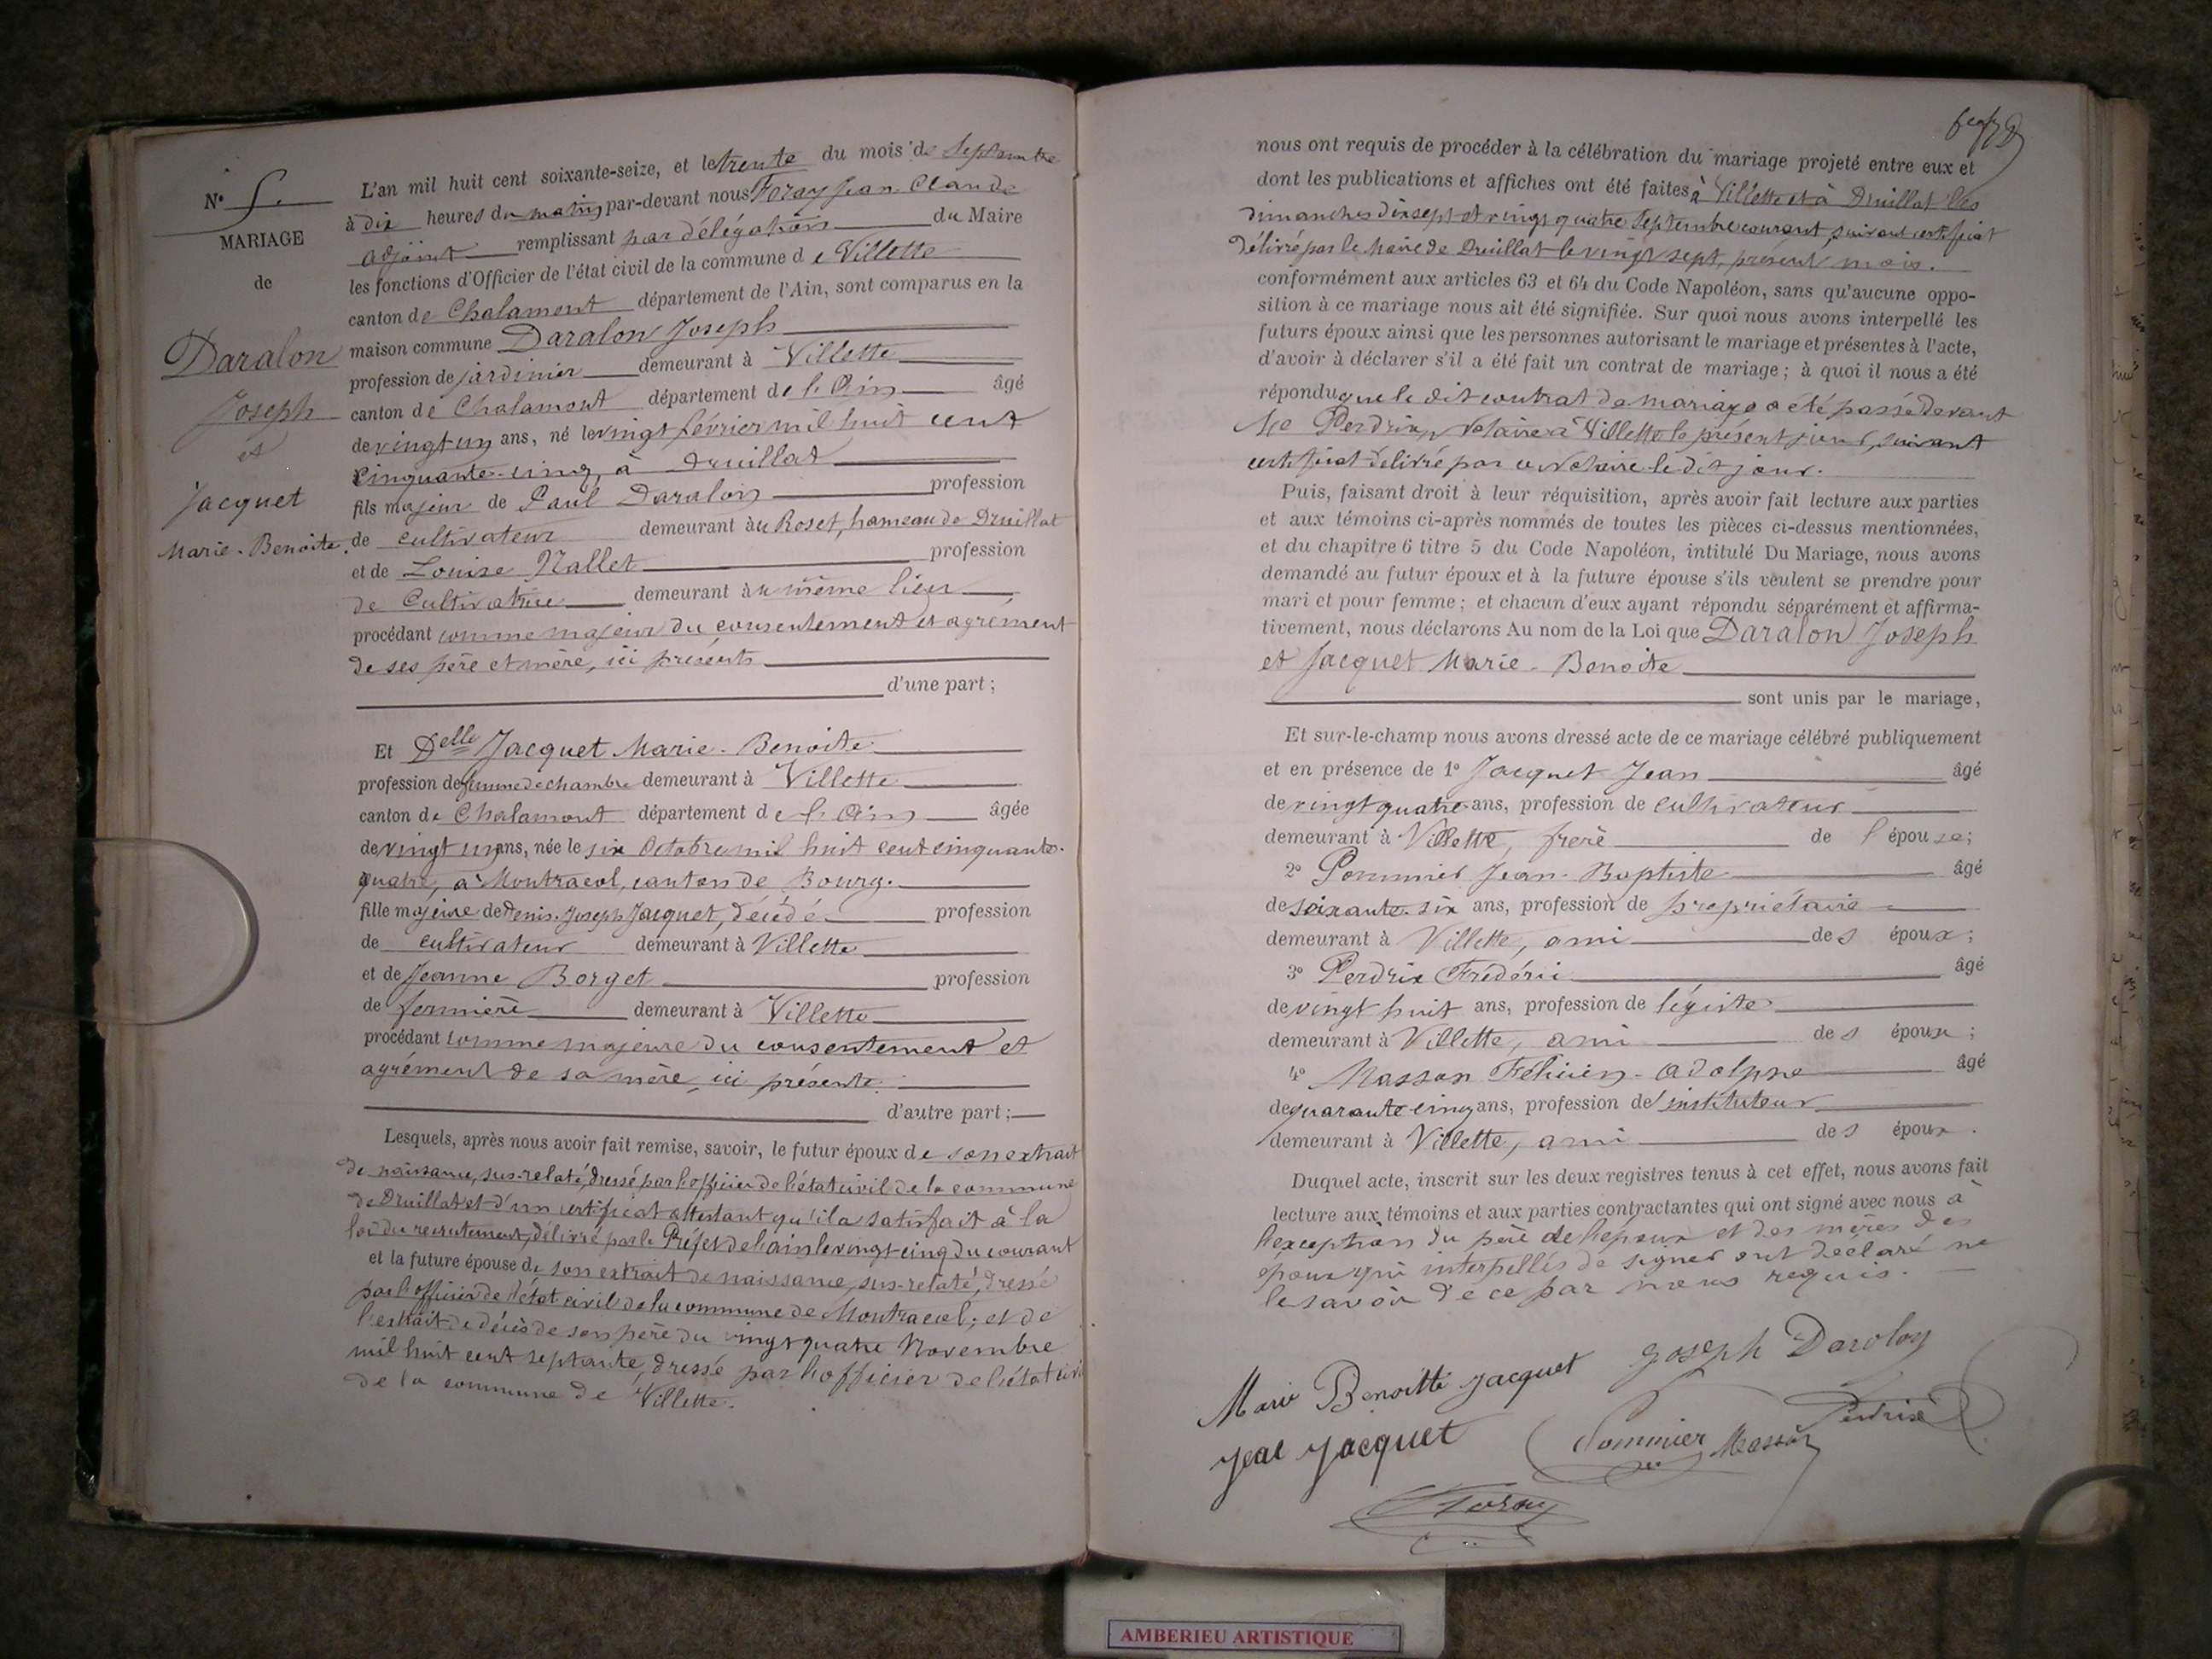 N° 5.
MARIAGE
de
Daralon
Joseph
et
Jacquet
Marie-Benoite.
L'an mil huit cent soixante-seize, et le trente du mois de Septembre
à dix heures du matin par-devant nous Foray Jean Claude
adjoint remplissant par délégation du Maire
les fonctions d'Officier de l'état civil de la commune de Villette
canton de Chalamont département de l'Ain, sont comparus en la
maison commune Daralon Joseph
profession de jardinier demeurant à Villette
canton de Chalamont département de l'Ain âgé
de vingt un ans, né le vingt février mil huit cent
cinquante-cinq à Druillat
fils majeur de Paul Daralon profession
de cultivateur demeurant au Roset, hameau de Druillat
et de Louise Nallet profession
de Cultivatrice demeurant au même lieu
procédant comme majeur du consentement et agrément
de ses père et mère, ici présents
d'une part ;
Et Delle Jacquet Marie-Benoite
profession de femme de chambre demeurant à Villette
canton de Chalamont département de l'Ain âgée
de vingt un ans, née le six Octobre mil huit cent cinquante-
quatre, à Montracol, canton de Bourg.
fille majeure de Denis-Joseph Jacquet, décédé profession
de cultivateur demeurant à Villette
et de Jeanne Borget profession
de fermière demeurant à Villette
procédant comme majeure du consentement et
agrément de sa mère, ici présente.
d'autre part ;
Lesquels, après nous avoir fait remise, savoir, le futur époux de son extrait
de naissance, sus-relaté, dressé par l'officier de l'état civil de la commune
de Druillat et d'un certificat attestant qu'il a satisfait à la
loi du recrutement, délivré par le Préfet de l'ain le vingt cinq du courant
et la future épouse de son extrait de naissance, sus-relaté, dressé
par l'officier de l'état civil de la commune de Montracol ; et de
l'extrait de décès de son père du vingt quatre Novembre
mil huit cent septante, dressé par l'officier de l'état civil
de la commune de Villette.
nous ont requis de procéder à la célébration du mariage projeté entre eux et
dont les publications et affiches ont été faites à Villette et à Druillat les
dimanches dix sept et vingt quatre Septembre courant, suivant certificat
délivré par le Maire de Druillat le vingt sept, présent mois.
conformément aux articles 63 et 64 du Code Napoléon, sans qu'aucune oppo-
sition à ce mariage nous ait été signifiée. Sur quoi nous avons interpellé les
futurs époux ainsi que les personnes autorisant le mariage et présentes à l'acte,
d'avoir à déclarer s'il a été fait un contrat de mariage ; à quoi il nous a été
répondu que le dit contrat de mariage a été passé devant
Me Perdrix, Notaire à Villette le présent jour, suivant
certificat délivré par ce Notaire le dit jour.
Puis, faisant droit à leur réquisition, après avoir fait lecture aux parties
et aux témoins ci-après nommés de toutes les pièces ci-dessus mentionnées,
et du chapitre 6 titre 5 du Code Napoléon, intitulé Du Mariage, nous avons
demandé au futur époux et à la future épouse s'ils veulent se prendre pour
mari et pour femme ; et chacun d'eux ayant répondu séparément et affirma-
tivement, nous déclarons Au nom de la Loi que Daralon Joseph
et Jacquet Marie-Benoite
sont unis par le mariage,
Et sur-le-champ nous avons dressé acte de ce mariage célébré publiquement
et en présence de 1° Jacquet Jean âgé
de vingt quatre ans, profession de cultivateur
demeurant à Villette, frère de l'épouse ;
2° Pommier Jean-Baptiste âgé
de soixante-six ans, profession de propriétaire
demeurant à Villette, ami des époux ;
3° Perdrix Frédéric âgé
de vingt huit ans, profession de légiste
demeurant à Villette, ami des époux ;
4° Masson Félicien-Adolphe âgé
de quarante cinq ans, profession de instituteur
demeurant à Villette, ami des époux.
Duquel acte, inscrit sur les deux registres tenus à cet effet, nous avons fait
lecture aux témoins et aux parties contractantes qui ont signé avec nous à
l'exception du père de l'époux et des mères des
époux qui interpellés de signer ont déclaré ne
le savoir de ce par nous requis.
Joseph Daralon
Marie Benoitte Jacquet
Perdrix
Jean Jacquet
Pommier Masson
Foray
AMBERIEU ARTISTIQUE